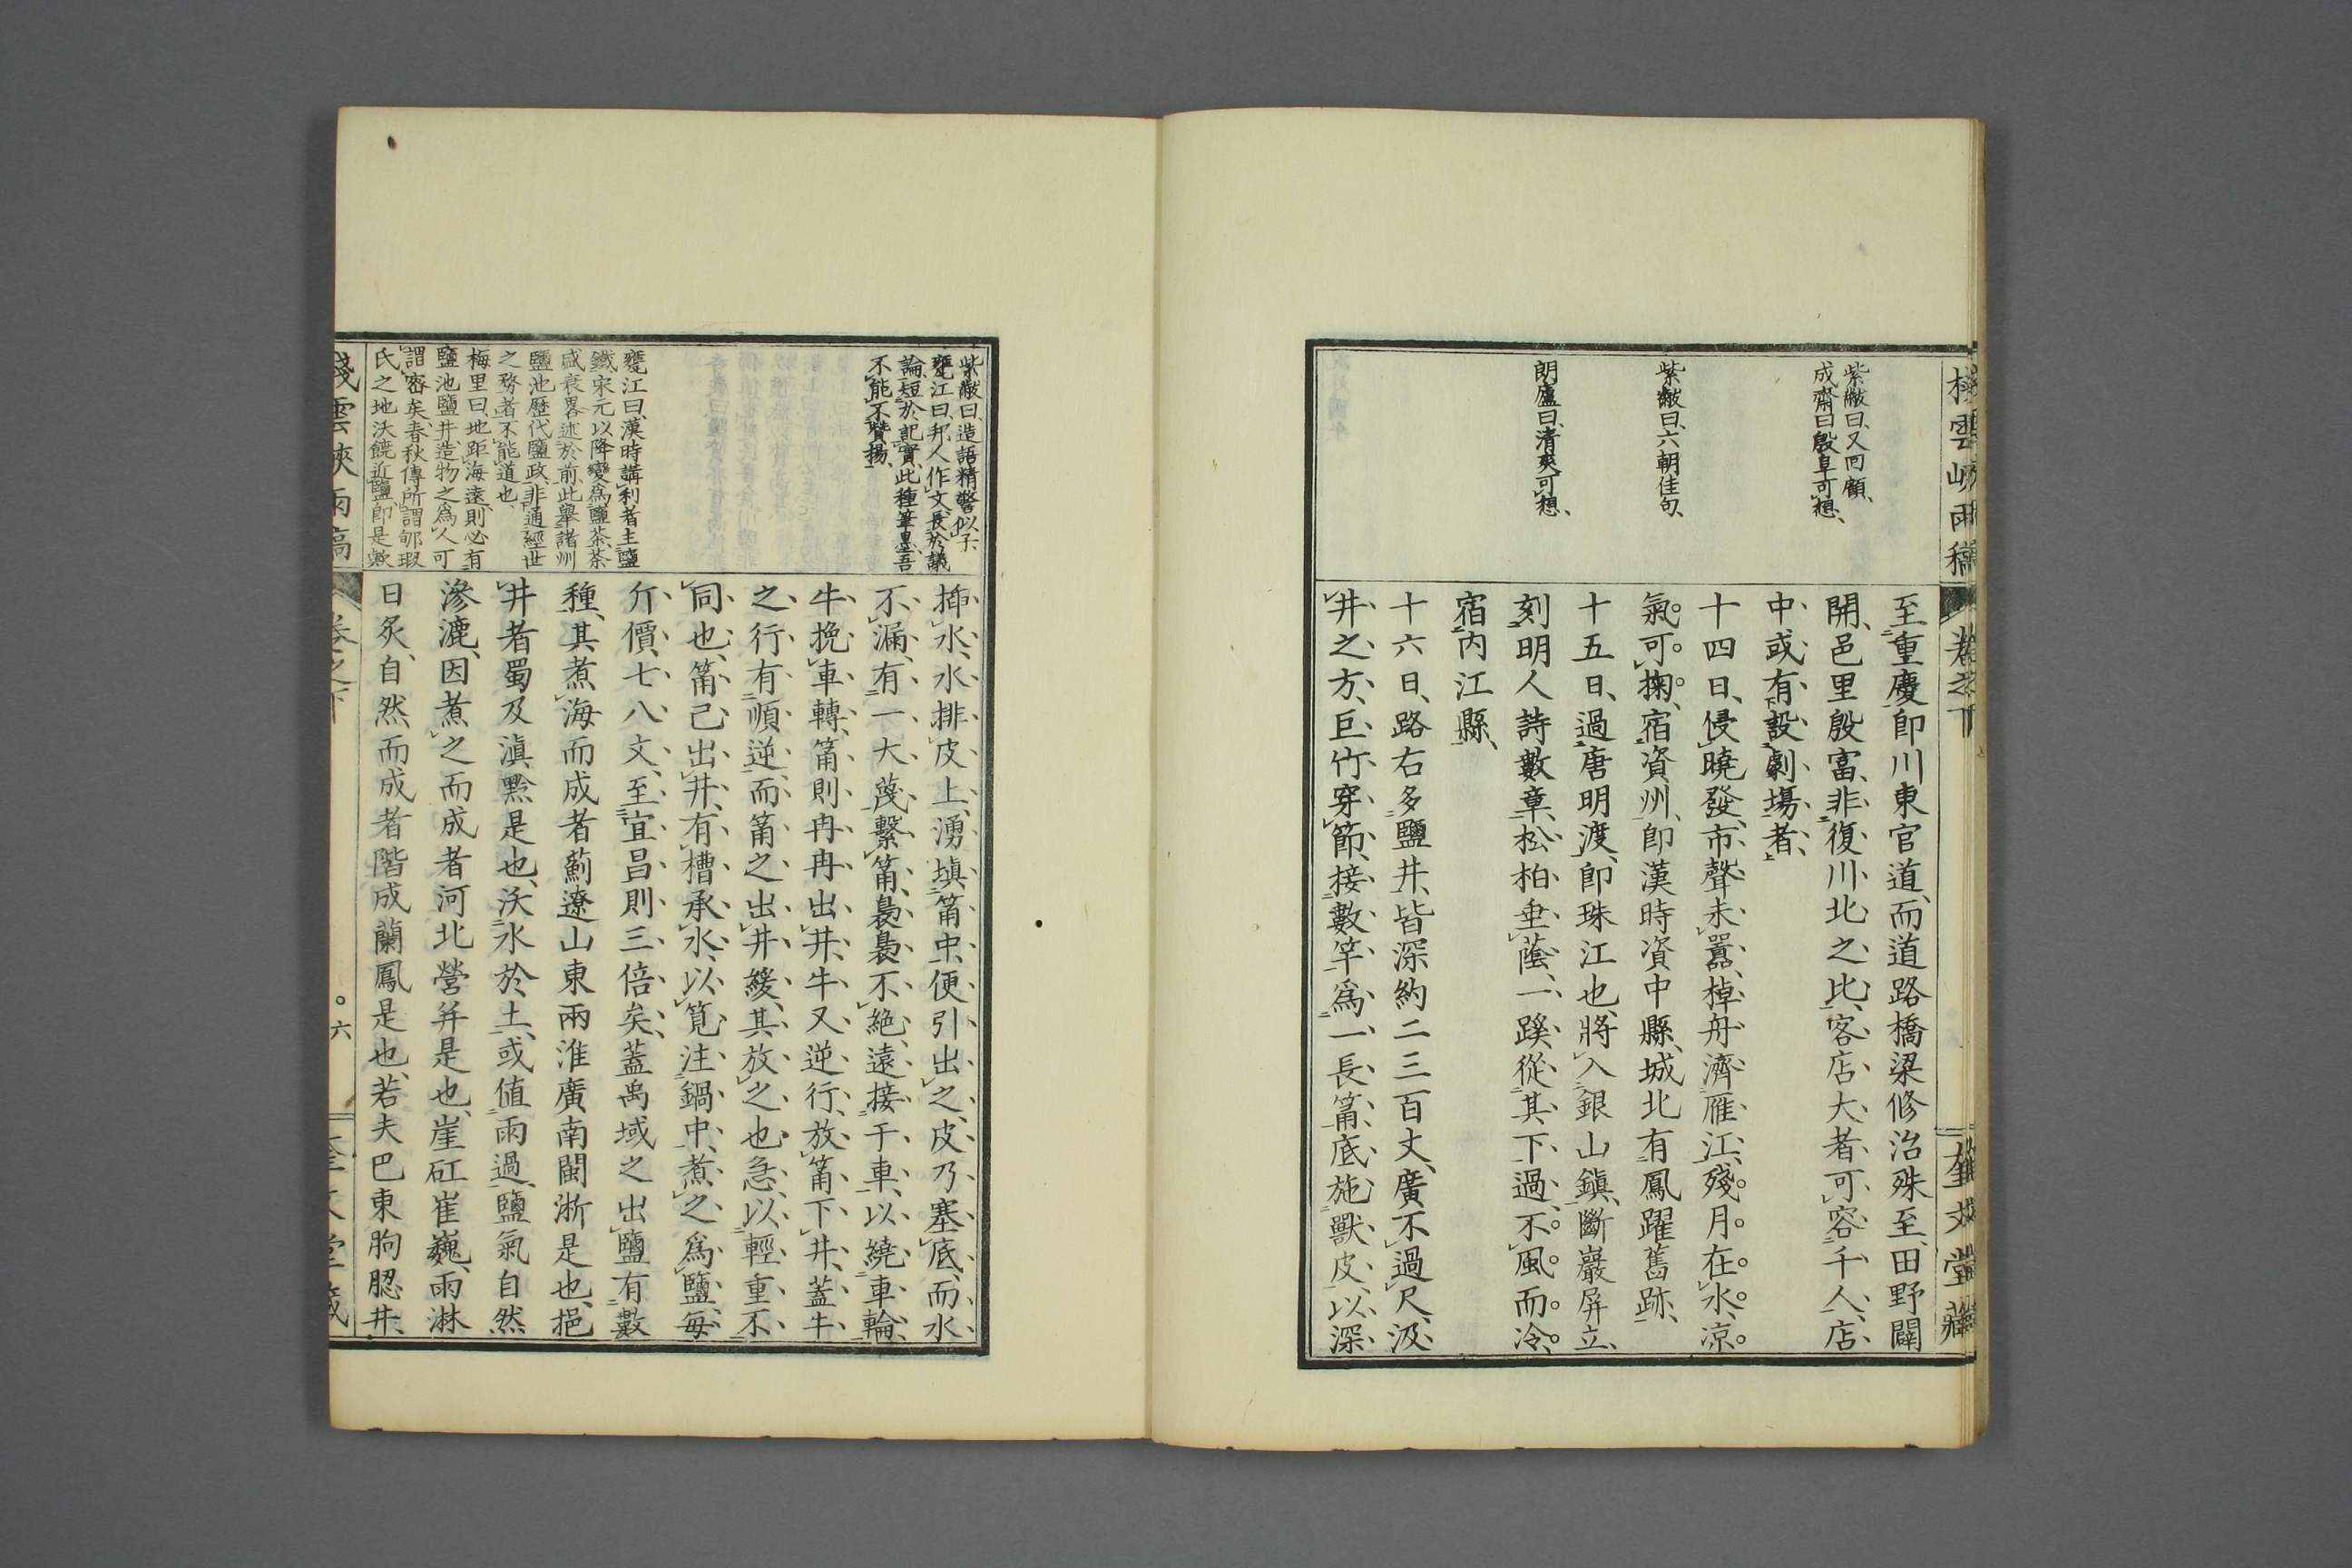 棧雲峽雨稿
卷之下
奎文堂藏
紫瀫曰、又回顧、
成齋曰、殷阜可想、
紫瀫曰、六朝佳句、
朗廬曰、清爽可想、
至重慶卽川東官道、而道路橋梁修治殊至、田野闢
開、邑里殷富、非復川北之比、客店大者、可容千人、店
中或有設劇場者、
十四日、侵曉發、市聲未囂、棹舟濟雁江、殘月在水、凉
氣可掬、宿資州、卽漢時資中縣、城北有鳳躍舊跡、
十五日、過唐明渡、卽珠江也、將入銀山鎭、斷巖屏立、
刻明人詩數章、松柏垂蔭、一蹊從其下過、不風而冷、
宿內江縣、
十六日、路右多鹽井、皆深約二三百丈、廣不過尺、汲
井之方、巨竹穿節、接數竿爲一長筩、底施獸皮、以深
紫瀫曰、造語精警似子、
甕江曰、邦人作文、長於議
論、短於記實、此種筆墨、吾
不能不贊揚、
甕江曰、漢時講利者主鹽
鐵、宋元以降、變爲鹽茶、茶
盛衰畧述於前、此舉諸州
鹽池歷代鹽政、非通經世
之務者、不能道也、
梅里曰、地距海遠、則必有
鹽池鹽井、造物之爲人可
謂密矣、春秋傳所謂郇瑕
氏之地沃饒近鹽、卽是歟
揷水、水排皮上、湧塡筩中、便引出之、皮乃塞底、而水
不漏、有一大篾、繫筩、裊裊不絕、遠接于車、以繞車輪、
牛挽車轉、筩則冉冉出井、牛又逆行、放筩下井、蓋牛
之行有順逆、而筩之出井緩、其放之也急、以輕重不
同也、筩已出井、有槽承水、以筧注鍋中、煮之爲鹽、每
斤價、七八文、至宜昌則三倍矣、蓋禹域之出鹽有數
種、其煮海而成者薊遼山東兩淮廣南閩浙是也、挹
井者蜀及滇黔是也、沃水於土、或値雨過、鹽氣自然
滲漉、因煮之而成者河北營幷是也、崖矼崔巍、雨淋
日炙、自然而成者階成蘭鳳是也、若夫巴東朐䏰井、
棧雲峽雨稿
卷之下
六
奎文堂藏